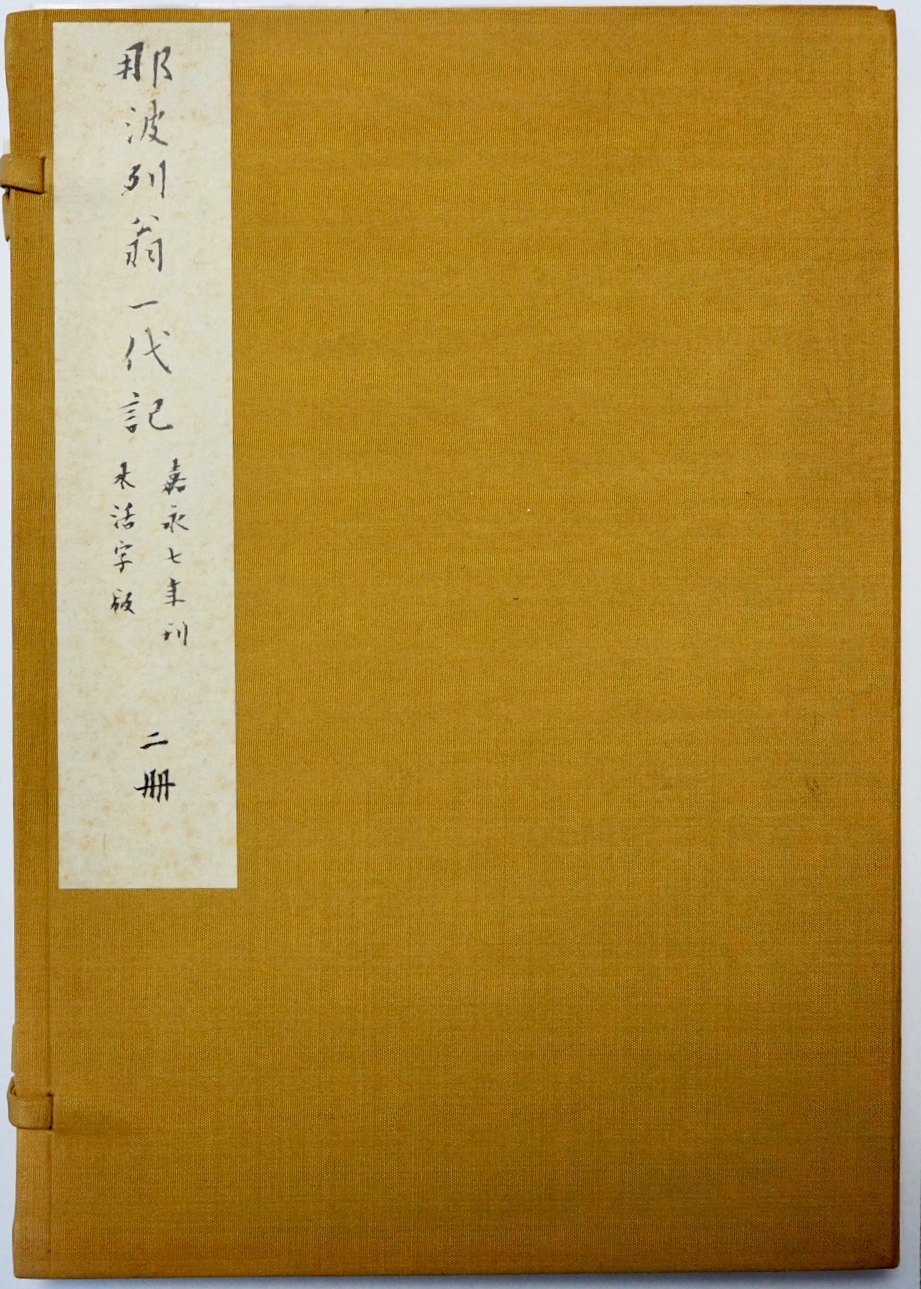 那波列翁一代記
嘉永七年刊
木活字版
二冊